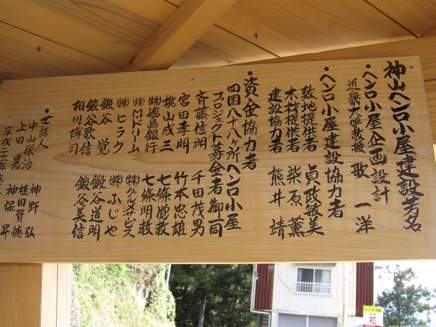 神山ヘンロ小屋建設芳名
・ヘンロ小屋企画設計
近畿大学教授 歌 一洋
・ヘンロ小屋建設協力者
敷地提供者 貞政敏美
木材提供者 柴原 薫
建設協力者 熊井 靖
・資金協力者
四国八十八ヶ所ヘンロ小屋
プロジェクト募金者御一同
斉藤信明 千田茂男
宮田孝明 竹本忠雄
桃山成三 七條廣毅
㈱徳島銀行 七條明敏
㈲Mドリーム
㈱ヒラク ㈲ふじや
鍛谷 覚 鍛谷道明
鍛谷歌信 鍛谷美信
相川博司
・世話人
神野 弘
上田 晃 植田賢徳
平成二十 神保 昇
花